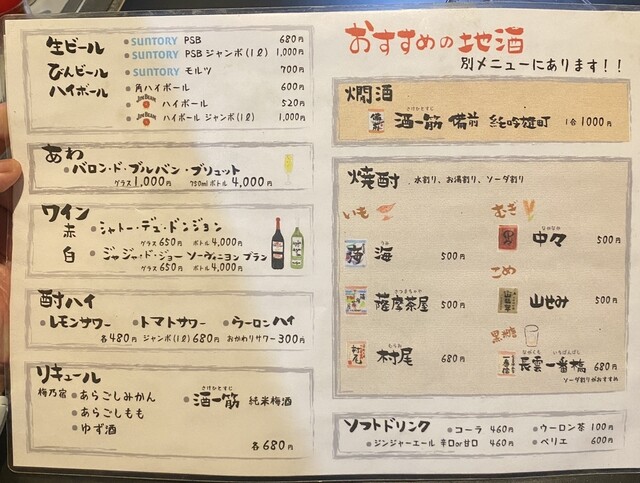 生ビール
SUNTORY PSB 680円
SUNTORY PSBジャンボ(1ℓ) 1,000円
びんビール SUNTORY モルツ 700円
ハイボール 角ハイボール 600円
JIM BEAM ハイボール 520円
JIM BEAM ハイボールジャンボ(1ℓ) 1,000円
あわ
バロン・ド・ブルバン・ブリュット
グラス 1,000円 750mlボトル 4,000円
ワイン
赤 シャトー・デュ・ドンジョン
グラス 650円 ボトル 4,000円
白 ジャジャ・ド・ジョー ソーヴィニヨンブラン
グラス 650円 ボトル 4,000円
酎ハイ
レモンサワー トマトサワー ウーロンハイ
各480円 ジャンボ(1ℓ)680円 おかわりサワー300円
リキュール
梅乃宿 あらごしみかん
あらごしもも
ゆず酒
さけひとすじ
酒一筋 純米梅酒
各680円
おすすめの地酒
別メニューにあります!!
燗酒
さけひとすじ
酒一筋 備前 純吟雄町 1合 1000円
焼酎 水割り、お湯割り、ソーダ割り
いも
うみ
海 500円
さつまちゃや
薩摩茶屋 500円
むらお
村尾 680円
むぎ
なかなか
中々 500円
こめ
山せみ 500円
黒糖
ながくも いちばんばし
長雲一番橋 680円
ソーダ割りがおすすめ
ソフトドリンク
コーラ 460円
ウーロン茶 100円
ジンジャーエール 辛口or甘口 460円
ペリエ 600円